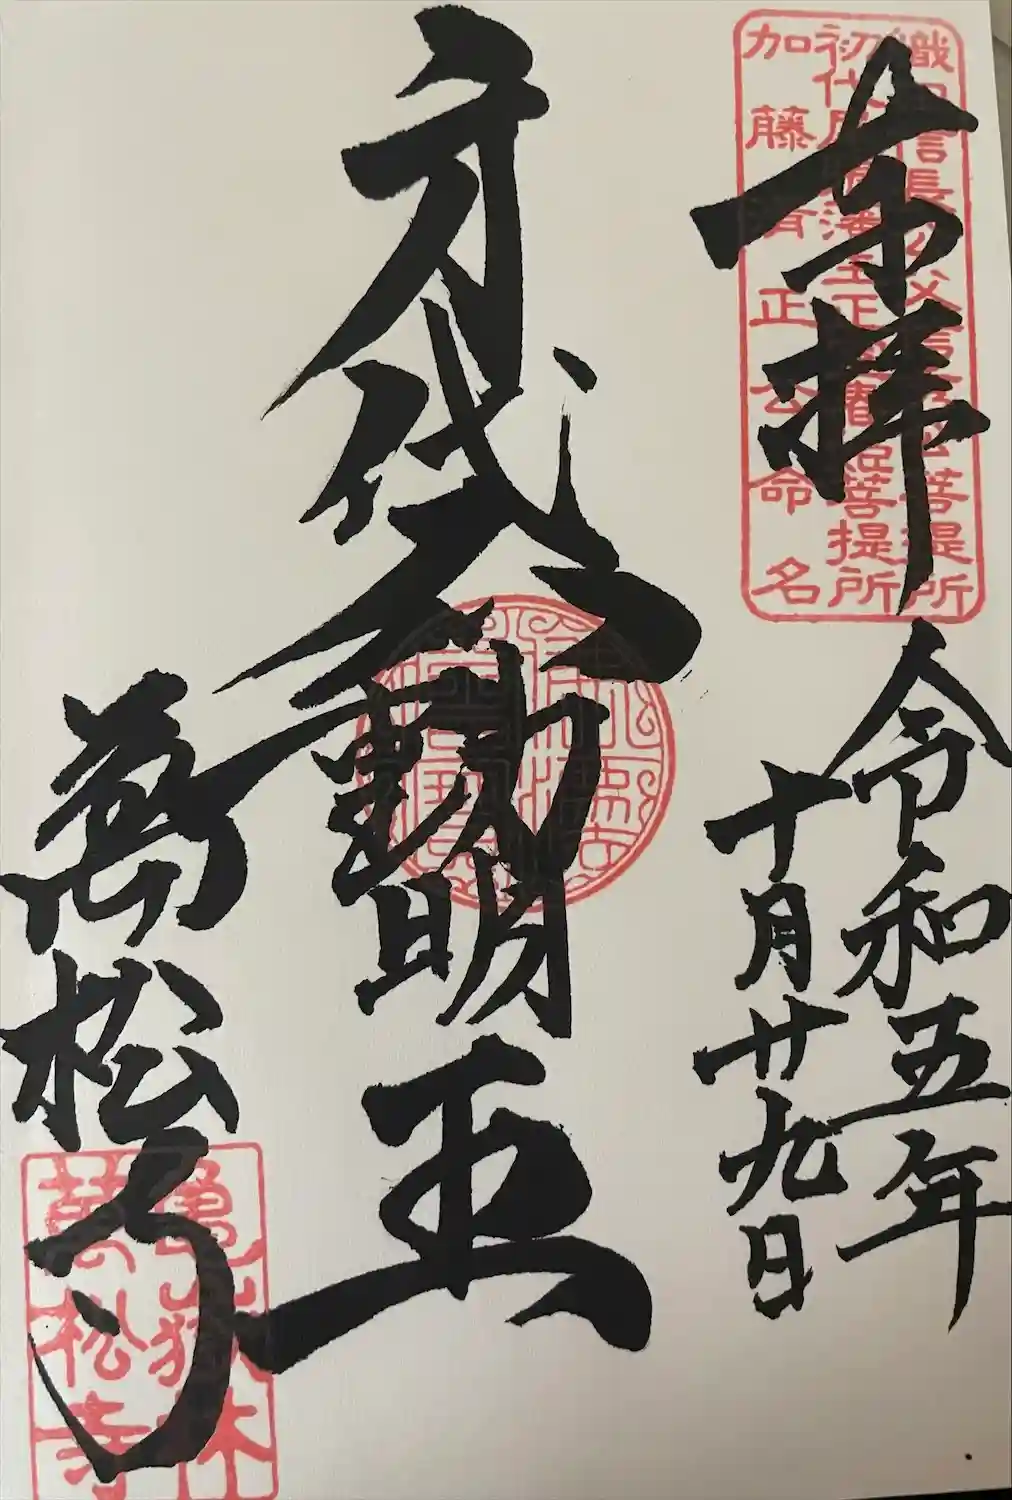 奉拝
織田信長公父信秀公菩提所
初代尾張藩主正室春姫菩提所
加藤清正公命名
令和五年
十月廿九日
身代不動明王
萬松寺
亀嶽林
萬松寺